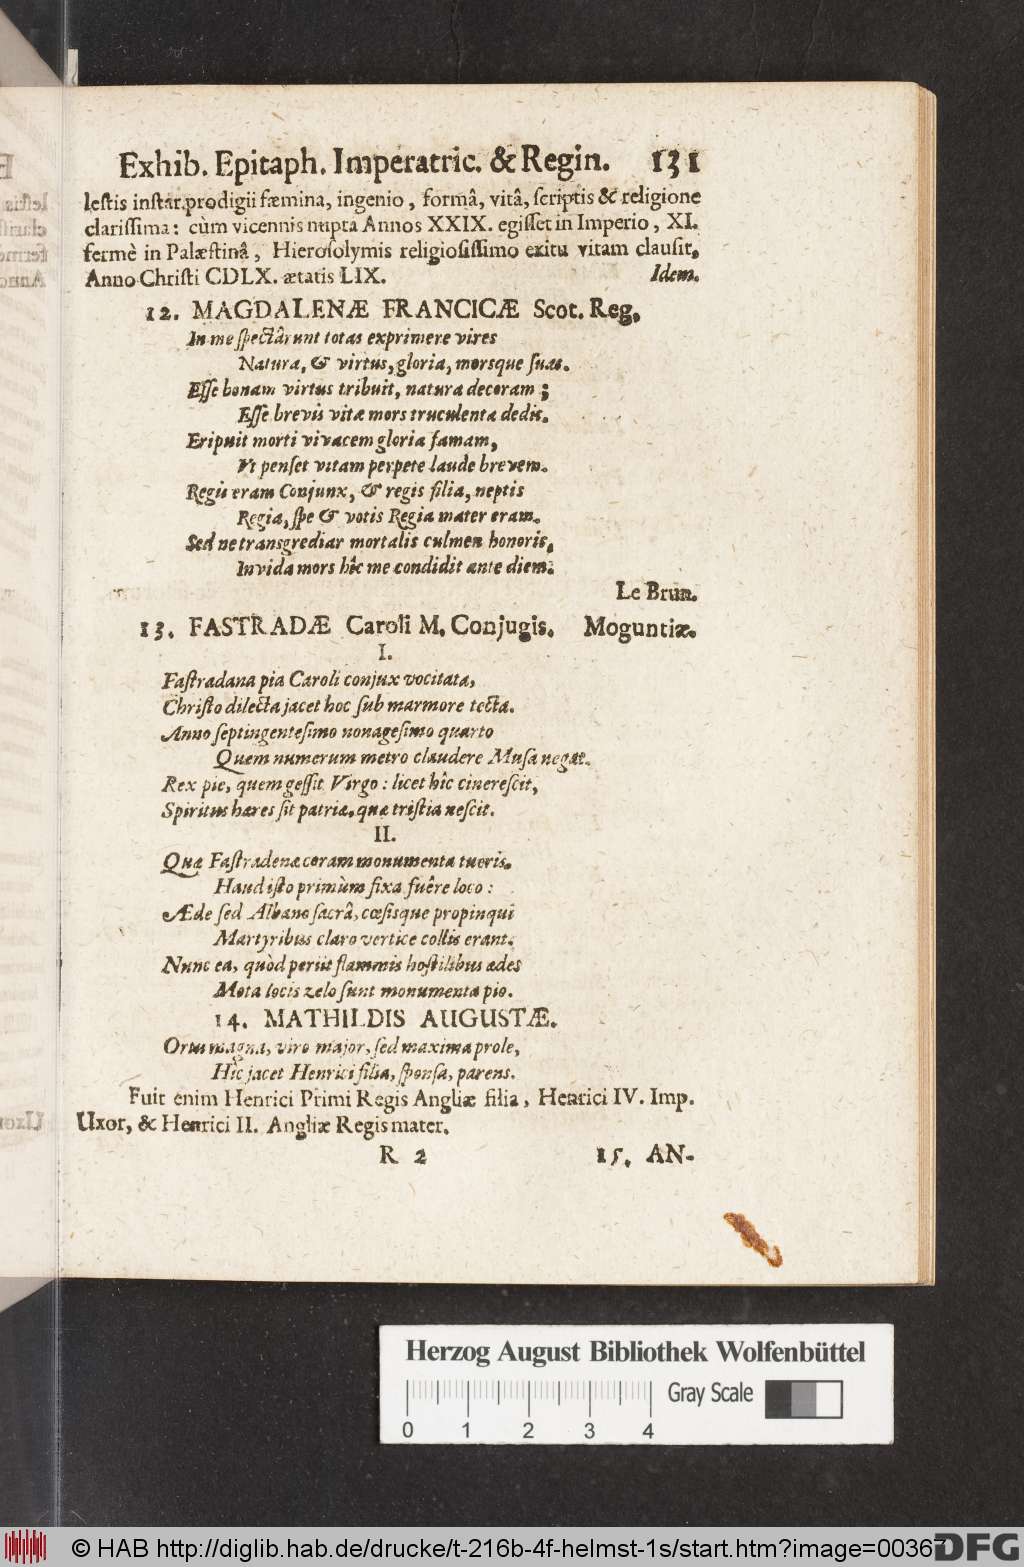 Exhib. Epitaph. Imperatric. & Regin. 131
lestis instar prodigii fæmina, ingenio, formâ, vitâ, scriptis & religione
clarissima: cùm vicennis nupta Annos XXIX. egisset in Imperio, XI.
fermè in Palæstinâ, Hierosolymis religiosissimo exitu vitam clausit,
Anno Christi CDLX. ætatis LIX. Idem.
12. MAGDALENÆ FRANCICÆ Scot. Reg.
In me spectârunt totas exprimere vires
Natura, & virtus, gloria, morsque suas.
Esse bonam virtus tribuit, natura decoram;
Esse brevis vitæ mors truculenta dedit.
Eripuit morti vivacem gloria famam,
Vt penset vitam perpete laude brevem.
Regis eram Conjunx, & regis filia, neptis
Regia, spe & votis Regia mater eram.
Sed ne transgrediar mortalis culmen honoris,
Invida mors hîc me condidit ante diem.
Le Brun.
13. FASTRADÆ Caroli M. Conjugis. Moguntiæ.
I.
Fastradana pia Caroli conjux vocitata,
Christo dilecta jacet hoc sub marmore tecta.
Anno septingentesimo nonagesimo quarto
Quem numerum metro claudere Musa negat.
Rex pie, quem gessit Virgo: licet hîc cinerescit,
Spiritus hæres sit patriæ, quæ tristia nescit.
II.
Quæ Fastradenæ coram monumenta tueris.
Haud isto primùm fixa fuêre loco:
Æde sed Albano sacrâ, cœsisque propinqui
Martyribus claro vertice collis erant.
Nunc ea, quòd periit flammis hostilibus ædes
Mota locis zelo sunt monumenta pio.
14. MATHILDIS AUGUSTÆ.
Ortu magna, viro major, sed maxima prole,
Hîc jacet Henrici filia, sponsa, parens.
Fuit enim Henrici Primi Regis Angliæ filia, Henrici IV. Imp.
Uxor, & Henrici II. Angliæ Regis mater.
R 2 15. AN-
Herzog August Bibliothek Wolfenbüttel
Gray Scale
0 1 2 3 4
© HAB http://diglib.hab.de/drucke/t-216b-4f-helmst-1s/start.htm?image=00367
DFG